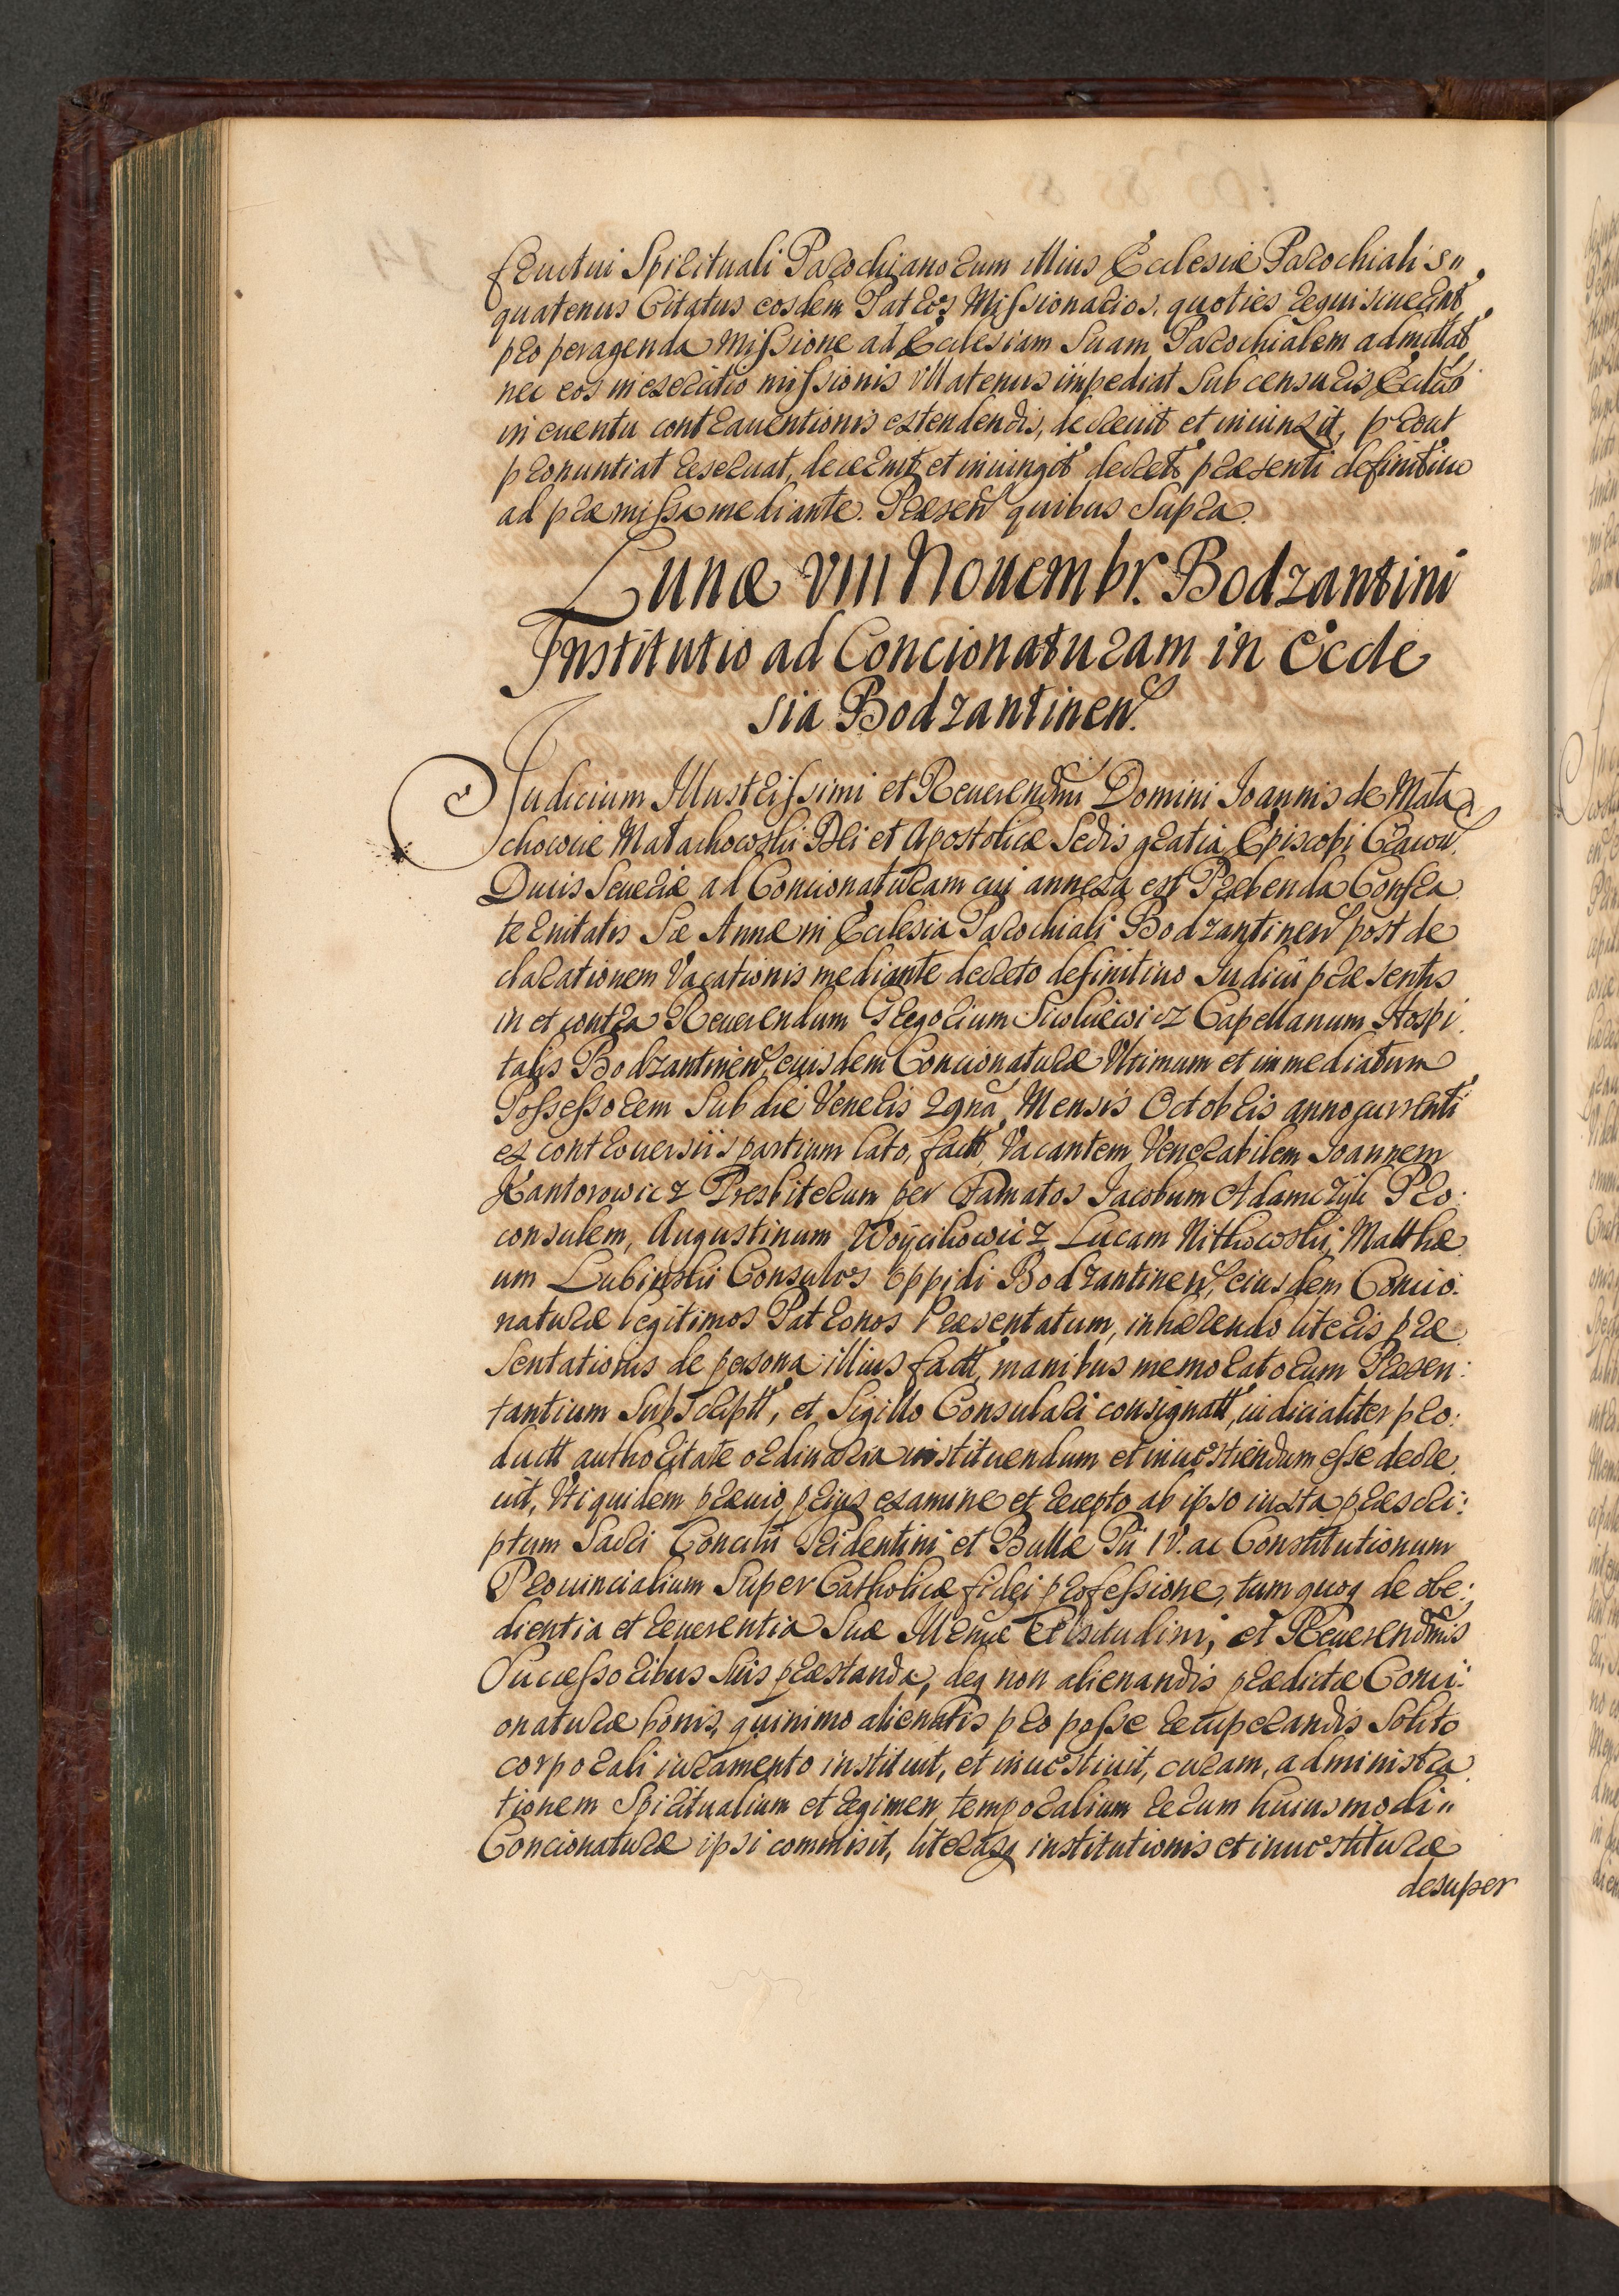 fructui Spirituali Parochianorum illius Ecclesiæ Parochialis"
quatenus Citatus eosdem Patres Missionarios, quoties requisiuerint
pro peragenda Missione ad Ecclesiam Suam Parochialem admittat
nec eos in exercitio missionis vllatenus impediat Sub censuris Ecclis
in euentu contrauentionis extendendis, decreuit et iniunxit, prout
pronuntiat reseruat, decernit et iniungit decreto præsenti definitiuo
ad præmissa mediante. Præsen quibus Supra.
Lunæ VIII Nouembr. Bodzantini
Institutio ad Concionaturam in Eccle
sia Bodzantinen.
Judicium Illustrissimi et Reuerendmi Domini Ioannis de Mała
chowice Małachowski Dei et Apostolicæ Sedis gratia Episcopi Cracou.
Ducis Seueriæ ad Concionaturam cui annexa est Præbenda Confra
ternitatis Sæ Annæ in Ecclesia Parochiali Bodzantinen post de
clarationem Vacationis mediante decreto definitiuo Iudicii præsentis
in et contra Reuerendum Gregorium Capellanum Hospi
talis Bodzantinen, eiusdem Concionaturæ Vltimum et immediatum
Possessorem Sub die Veneris 29na Mensis Octobris anno currenti
ex controuersiis partium lato, fact, Vacantem Venerabilem Ioannem
Kantorowicz Presbiterum per Famatos Iacobum Adamczyk Pro:
consulem, Augustinum Woycikowicz, Lucam Nitkowski, Matthæ
um Lubinski Consules Oppidi Bodzantinen, eiusdem Concio:
naturæ legitimos Patronos Præsentatum, inhærendo literis præ
sentationis de persona illius factt, manibus memoratorum Præsen:
tantium Subscriptt, et Sigillo Consulari consignatt, iudicialiter pro:
ductt authoritate ordinaria instituendum et inuestiendum esse decre
uit, Vti quidem præuio, prius examine et recepto ab ipso iuxta præscri:
ptum Sacri Concilii Tridentini et Bullæ Pii IV. ac Constitutionum
Prouincialium Super Catholicæ fidei professione, tum quoq de obe:
dientia et reuerentia Suæ Illmæ Celsitudini, et Reuerendmis
Successoribus Suis præstanda, deq non alienandis prædictæ Conci:
onaturæ bonis, quinimo alienatis pro posse recuperandis Solito
corporali iuramento instituit, et inuestiuit, curam, administra
tionem Spiritualium et regimen temporalium rerum huiusmodi"
Concionaturæ ipsi commisit, literasq institutionis et inuestituræ
desuper